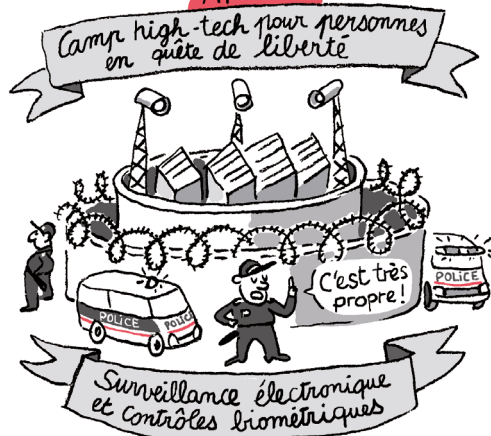 Camp high-tech pour personnes
en quête de liberté
C'est très
propre !
POLICE
POLICE
POLICE
Surveillance électronique
et contrôles biométriques